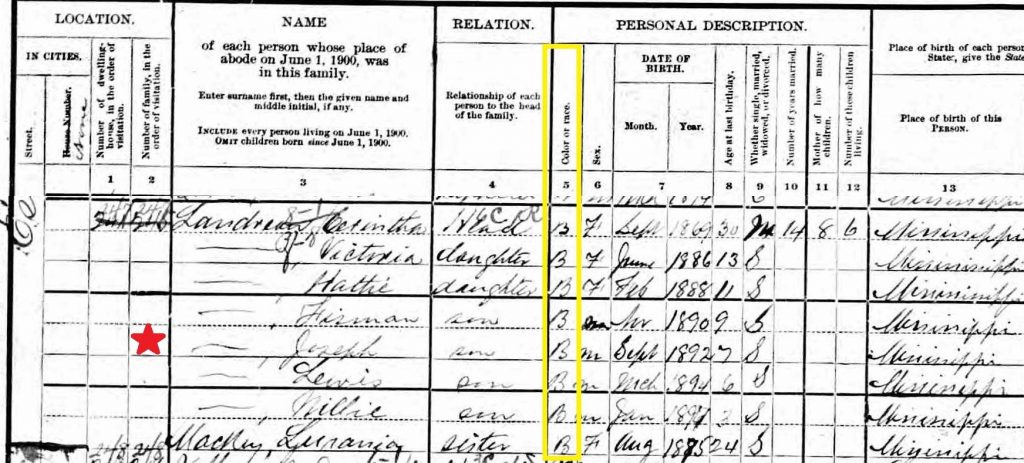 LOCATION. NAME RELATION. PERSONAL DESCRIPTION.
IN CITIES.
Street.
House Number.
Number of dwelling-house, in the order of visitation.
Number of family, in the order of visitation.
of each person whose place of
abode on June 1, 1900, was
in this family.
Enter surname first, then the given name and
middle initial, if any.
INCLUDE every person living on June 1, 1900.
OMIT children born since June 1, 1900.
Relationship of each
person to the head
of the family.
Color or race.
Sex.
DATE OF
BIRTH.
Month. Year.
Age at last birthday.
Whether single, married, widowed, or divorced.
Number of years married.
Mother of how many children.
Number of these children living.
Place of birth of each person
State, give the State
Place of birth of this
PERSON.
1 2 3 4 5 6 7 8 9 10 11 12 13
Mississippi
Head B F Sept 1869 30 M 14 8 6 Mississippi
Victoria daughter B F June 1886 13 S Mississippi
Hattie daughter B F Feb 1888 11 S Mississippi
son B m 1890 9 S Mississippi
Joseph son B m Sept 1892 7 S Mississippi
Lewis son B m Mch 1894 6 S Mississippi
Willie son B m Jan S Mississippi
sister B F Aug 1875 24 S Mississippi